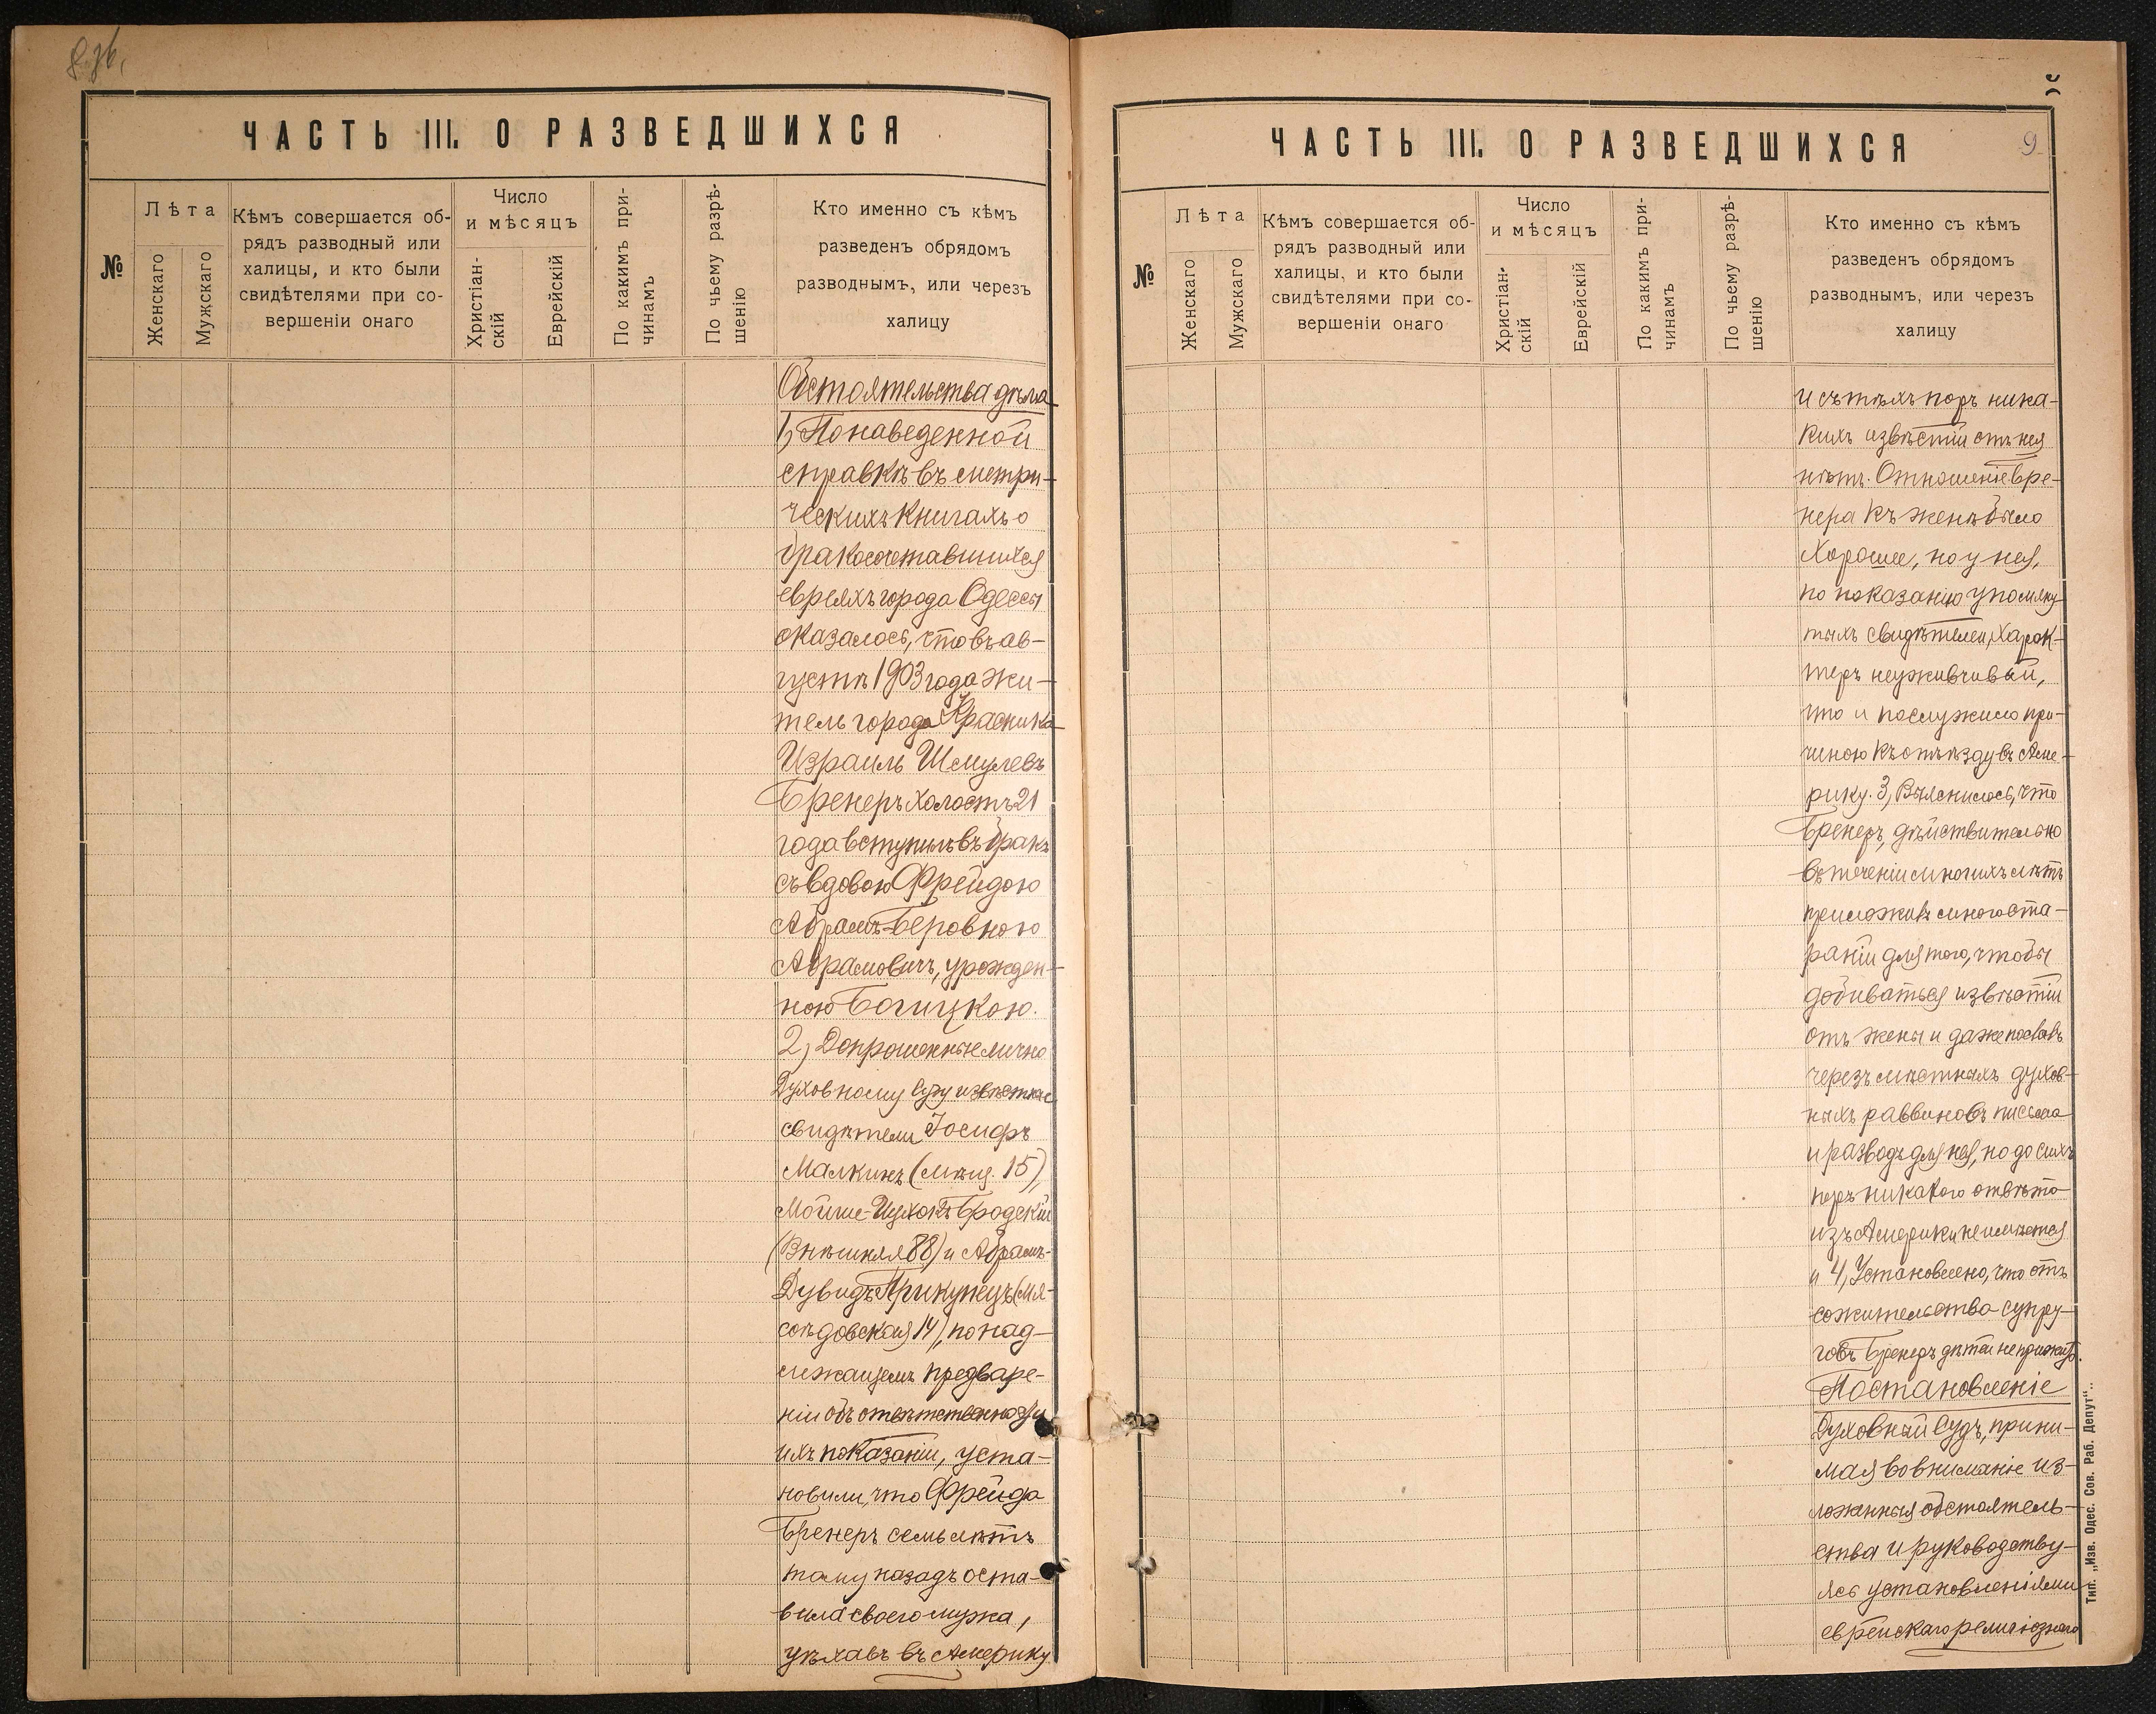 ЧАСТЬ III. О РАЗВЕДШИХСЯ
№
Лѣта
Женскаго
Мужскаго
Кѣмъ совершается об-
рядъ разводный или
халицы, и кто были
свидѣтелями при со-
вершеніи онаго
Число
и мѣсяцъ
Христіан-
скій
Еврейскій
По какимъ при-
чинамъ
По чьему разрѣ-
шенію
Кто именно съ кѣмъ
разведенъ обрядомъ
разводнымъ, или черезъ
халицу
Обстоятельства дѣла
1, По наведенной
справкѣ въ метри-
ческихъ книгахъ о
бракосочетавшихся
евреяхъ города Одессы
оказалось, что въ ав-
густѣ 1903 года жи-
тель города Красника
Израиль Шмулевъ
Бренеръ холостъ 21
года вступилъ въ бракъ
съ вдовою Фрейдою
Абрамъ-Беровною
Абрамовичъ, урожден-
ною Богицкою.
2, Допрошенные лично
Духовному Суду извѣстные
свидѣтели Іосифъ
Малкинъ (Мѣщ. 15),
Мойше-Ицхокъ Бродскій
(Внѣшняя 88) и Абрамъ-
Дувидъ Прикупецъ (Мя-
соѣдовская 14), по над-
лежащемъ предваре-
ніи объ отвѣтственности
ихъ показаніи, уста-
новили, что Фрейда
Бренеръ семь лѣтъ
тому назадъ оста-
вила своего мужа,
уѣхавъ въ Америку
ЧАСТЬ III. О РАЗВЕДШИХСЯ
9
№
Лѣта
Женскаго
Мужскаго
Кѣмъ совершается об-
рядъ разводный или
халицы, и кто были
свидѣтелями при со-
вершеніи онаго
Число
и мѣсяцъ
Христіан-
скій
Еврейскій
По какимъ при-
чинамъ
По чьему разрѣ-
шенію
Кто именно съ кѣмъ
разведенъ обрядомъ
разводнымъ, или черезъ
халицу
и съ тѣхъ поръ ника-
кихъ извѣстій отъ нея
нѣтъ. Отношеніе Бре-
нера къ женѣ было
хорошее, но у нея,
по показанію упомяну
тыхъ свидѣтелей, харак-
теръ неуживчивый,
что и послужило при-
чиною къ отъѣзду въ Аме-
рику. 3, Выяснилось, что
Бренеръ, дѣйствительно
въ теченіи многихъ лѣтъ
приложивъ много ста-
раній для того, чтобы
добиваться извѣстій
отъ жены и даже пославъ
черезъ мѣстныхъ духов-
ныхъ раввиновъ письма
и разводъ для нея, но до сихъ
поръ никакого отвѣта
изъ Америки не имѣется
и 4, Установлено, что отъ
сожительства супру-
говъ Бренеръ дѣтей не прижито.
Постановленіе
Духовный Судъ, прини-
мая во вниманіе из-
ложенныя обстоятель-
ства и руководству-
ясь установленіями
еврейскаго религіознаго
Тип. „Изв. Одес. Сов. Раб. Депут“.